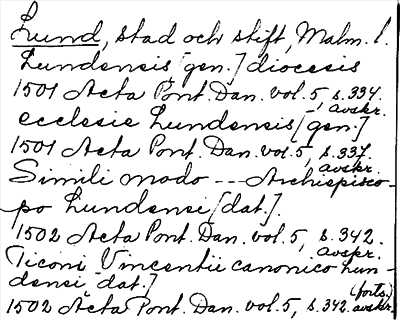 Lund, stad och stift, Malm. l.
Lundensis [gen.] diocesis
1501 Acta Pont. Dan. vol. 5, s. 334.
avskr.
ecclesie Lundensis [gen.]
1501 Acta Pont. Dan. vol. 5, s. 337.
avskr.
Simili modo --- Archiepisco-
po Lundensi [dat.].
1502 Acta Pont. Dan. vol. 5, s. 342.
avskr.
Ticoni Vincentii canonico Lun-
densi [dat.]
(forts.)
1502 Acta Pont. Dan. vol. 5, s. 342. avskr.